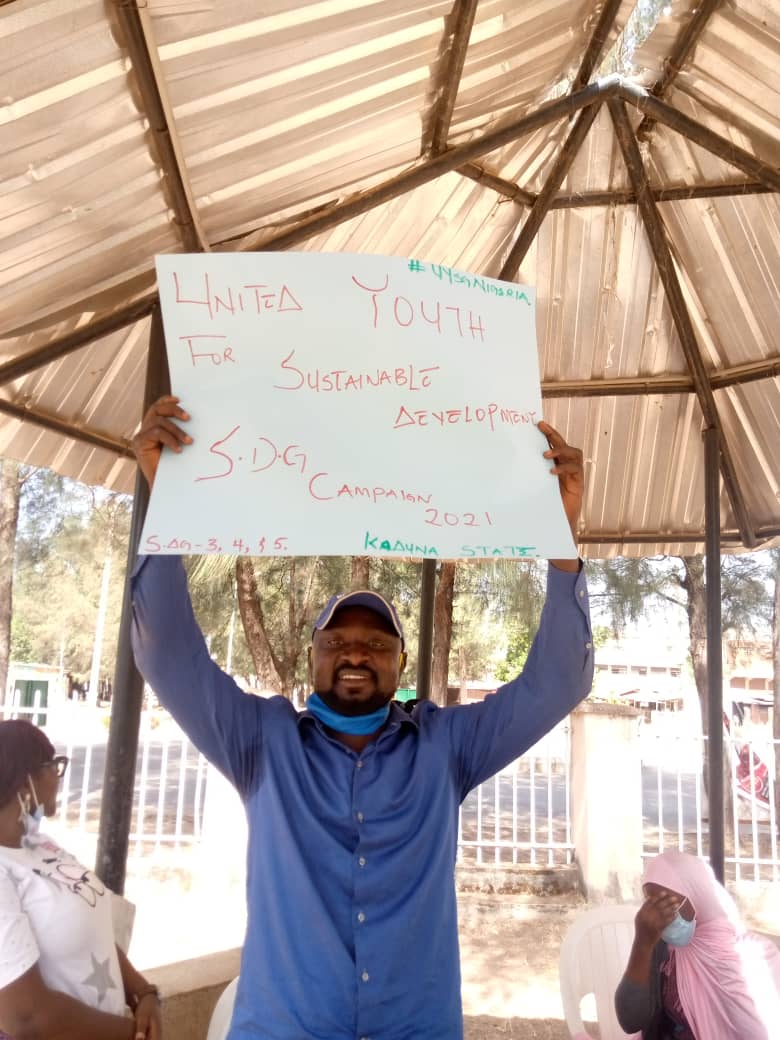 #UYSGNIGERIA
UNITED YOUTH
FOR SUSTAINABLE
DEVELOPMENT
S.D.G
CAMPAIGN
2021
S.DG-3, 4, & 5. KADUNA STATE.